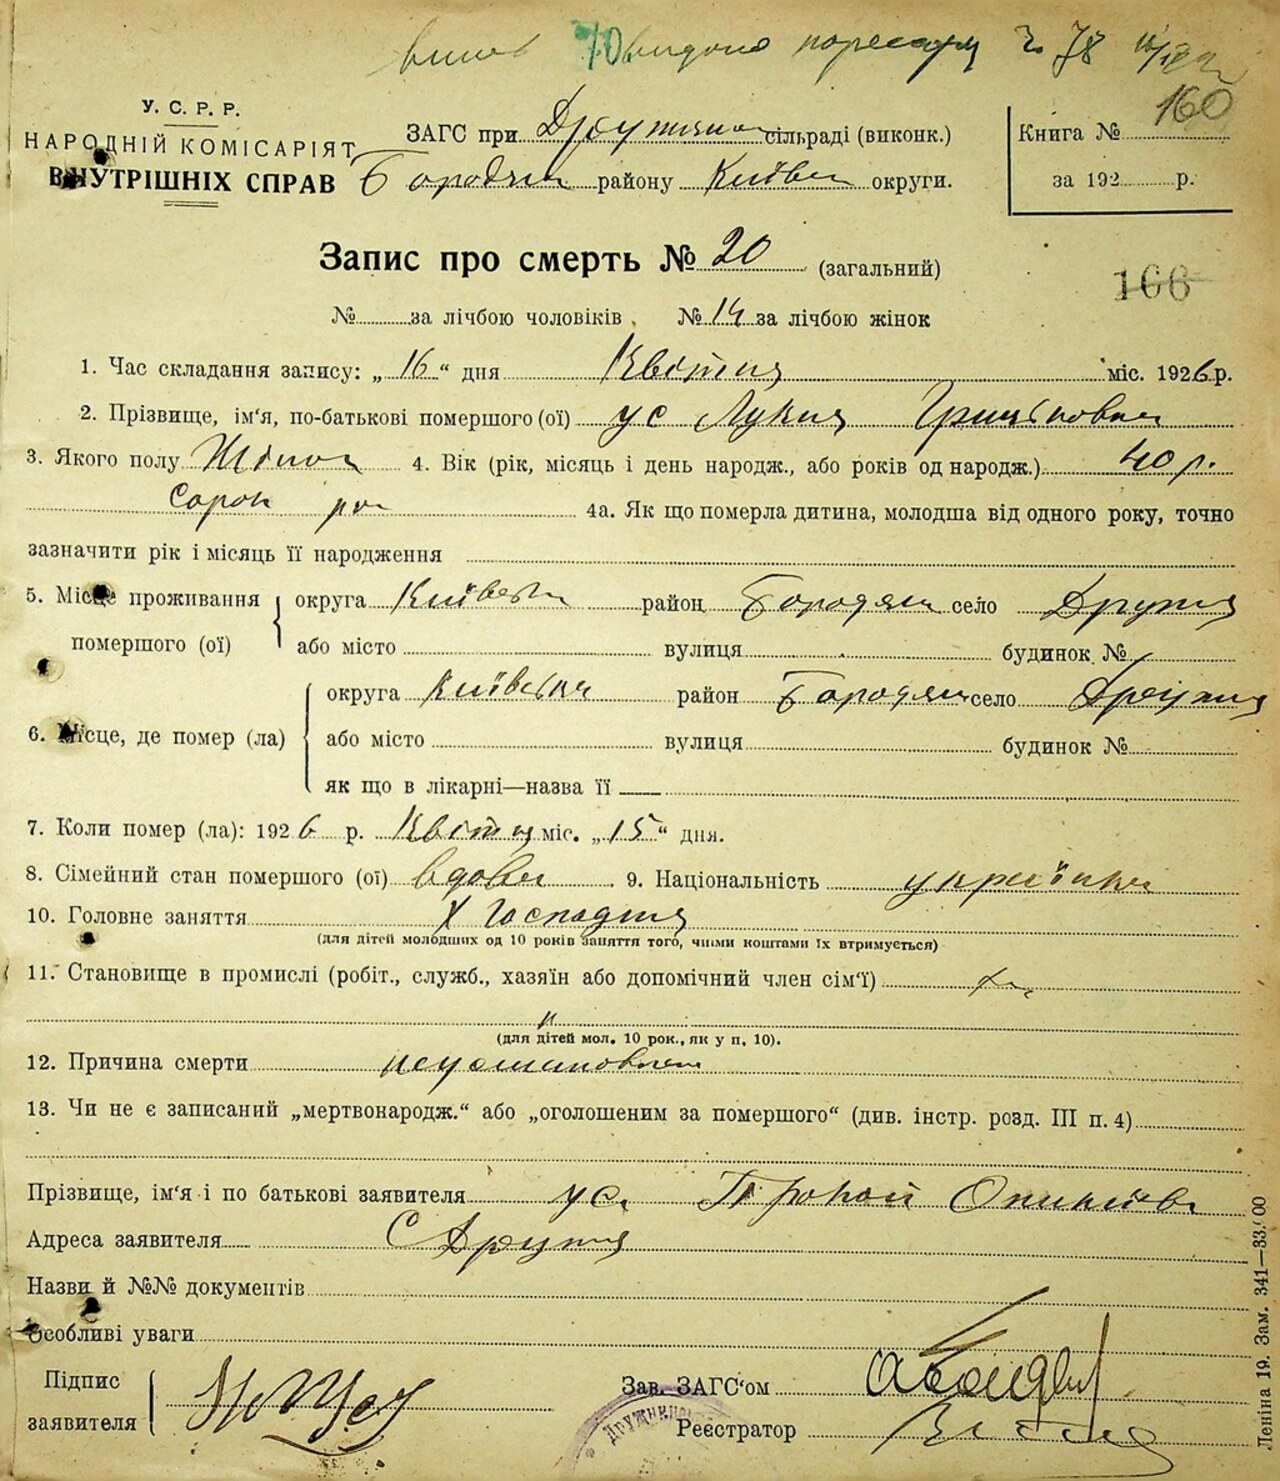 видано № 78
160
У. С. Р. Р.
НАРОДНІЙ КОМІСАРІЯТ
ВНУТРІШНІХ СПРАВ
ЗАГС при сільраді (виконк.)
Бородян району Київ округи.
Книга №
за 192 р.
Запис про смерть № 20 (загальний)
166
№ за лічбою чоловіків, № 14 за лічбою жінок
1. Час складання запису: „16“ дня Квітня міс. 1926 р.
2. Прізвище, ім'я, по-батькові помершого (ої) Ус Лукія
3. Якого полу 4. Вік (рік, місяць і день народж., або років од народж.) 40 р.
Сорок 4а. Як що померла дитина, молодша від одного року, точно
зазначити рік і місяць її народження
5. Місце проживання помершого (ої) округа Київськ район Бородян село Дружня
або місто вулиця будинок №
6. Місце, де помер (ла) округа Київська район Бородян село Дружня
або місто вулиця будинок №
як що в лікарні—назва її
7. Коли помер (ла): 1926 р. Квітня міс. „15“ дня.
8. Сімейний стан помершого (ої) вдова 9. Національність українка
10. Головне заняття Господиня
(для дітей молодших од 10 років заняття того, чиїми коштами їх втримується)
11. Становище в промислі (робіт., служб., хазяїн або допомічний член сім'ї)
(для дітей мол. 10 рок., як у п. 10).
12. Причина смерти
13. Чи не є записаний „мертвонародж.“ або „оголошеним за помершого“ (див. інстр. розд. III п. 4)
Прізвище, ім'я і по батькові заявителя Ус
Адреса заявителя С Дружня
Назви й №№ документів
Особливі уваги
Підпис
заявителя
Зав. ЗАГС'ом
Реєстратор
Леніна 19. Зам. 341—33.